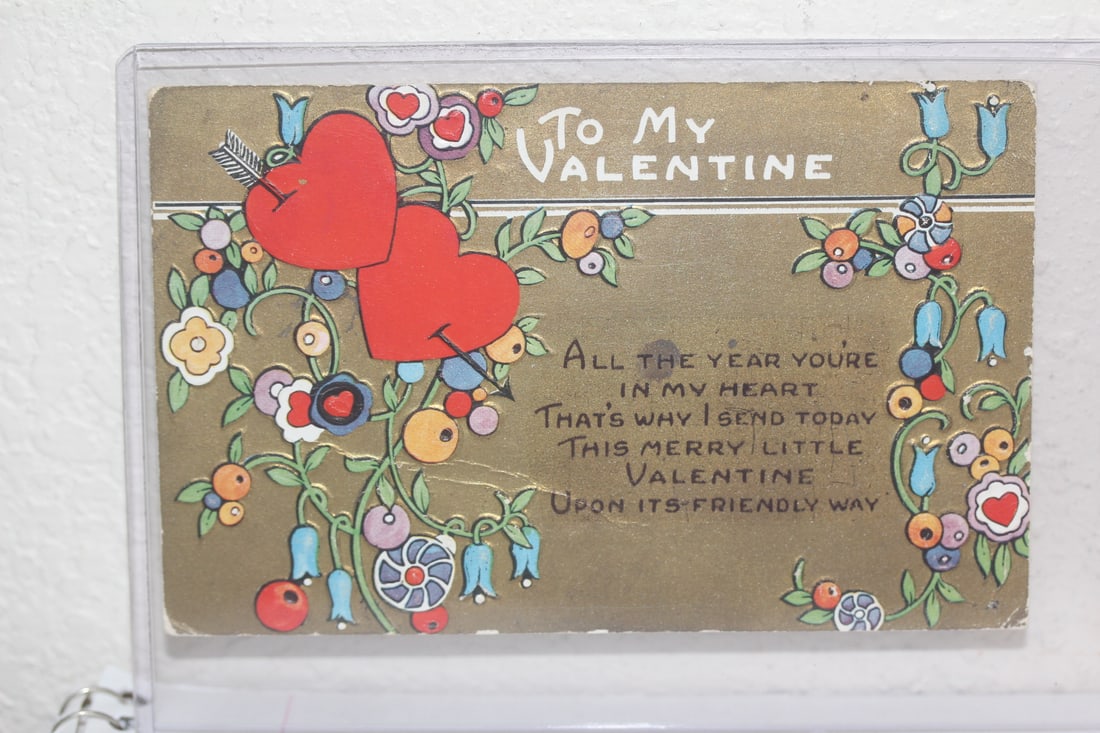 TO MY
VALENTINE
ALL THE YEAR YOU'RE
IN MY HEART
THAT'S WHY I SEND TODAY
THIS MERRY LITTLE
VALENTINE
UPON ITS FRIENDLY WAY